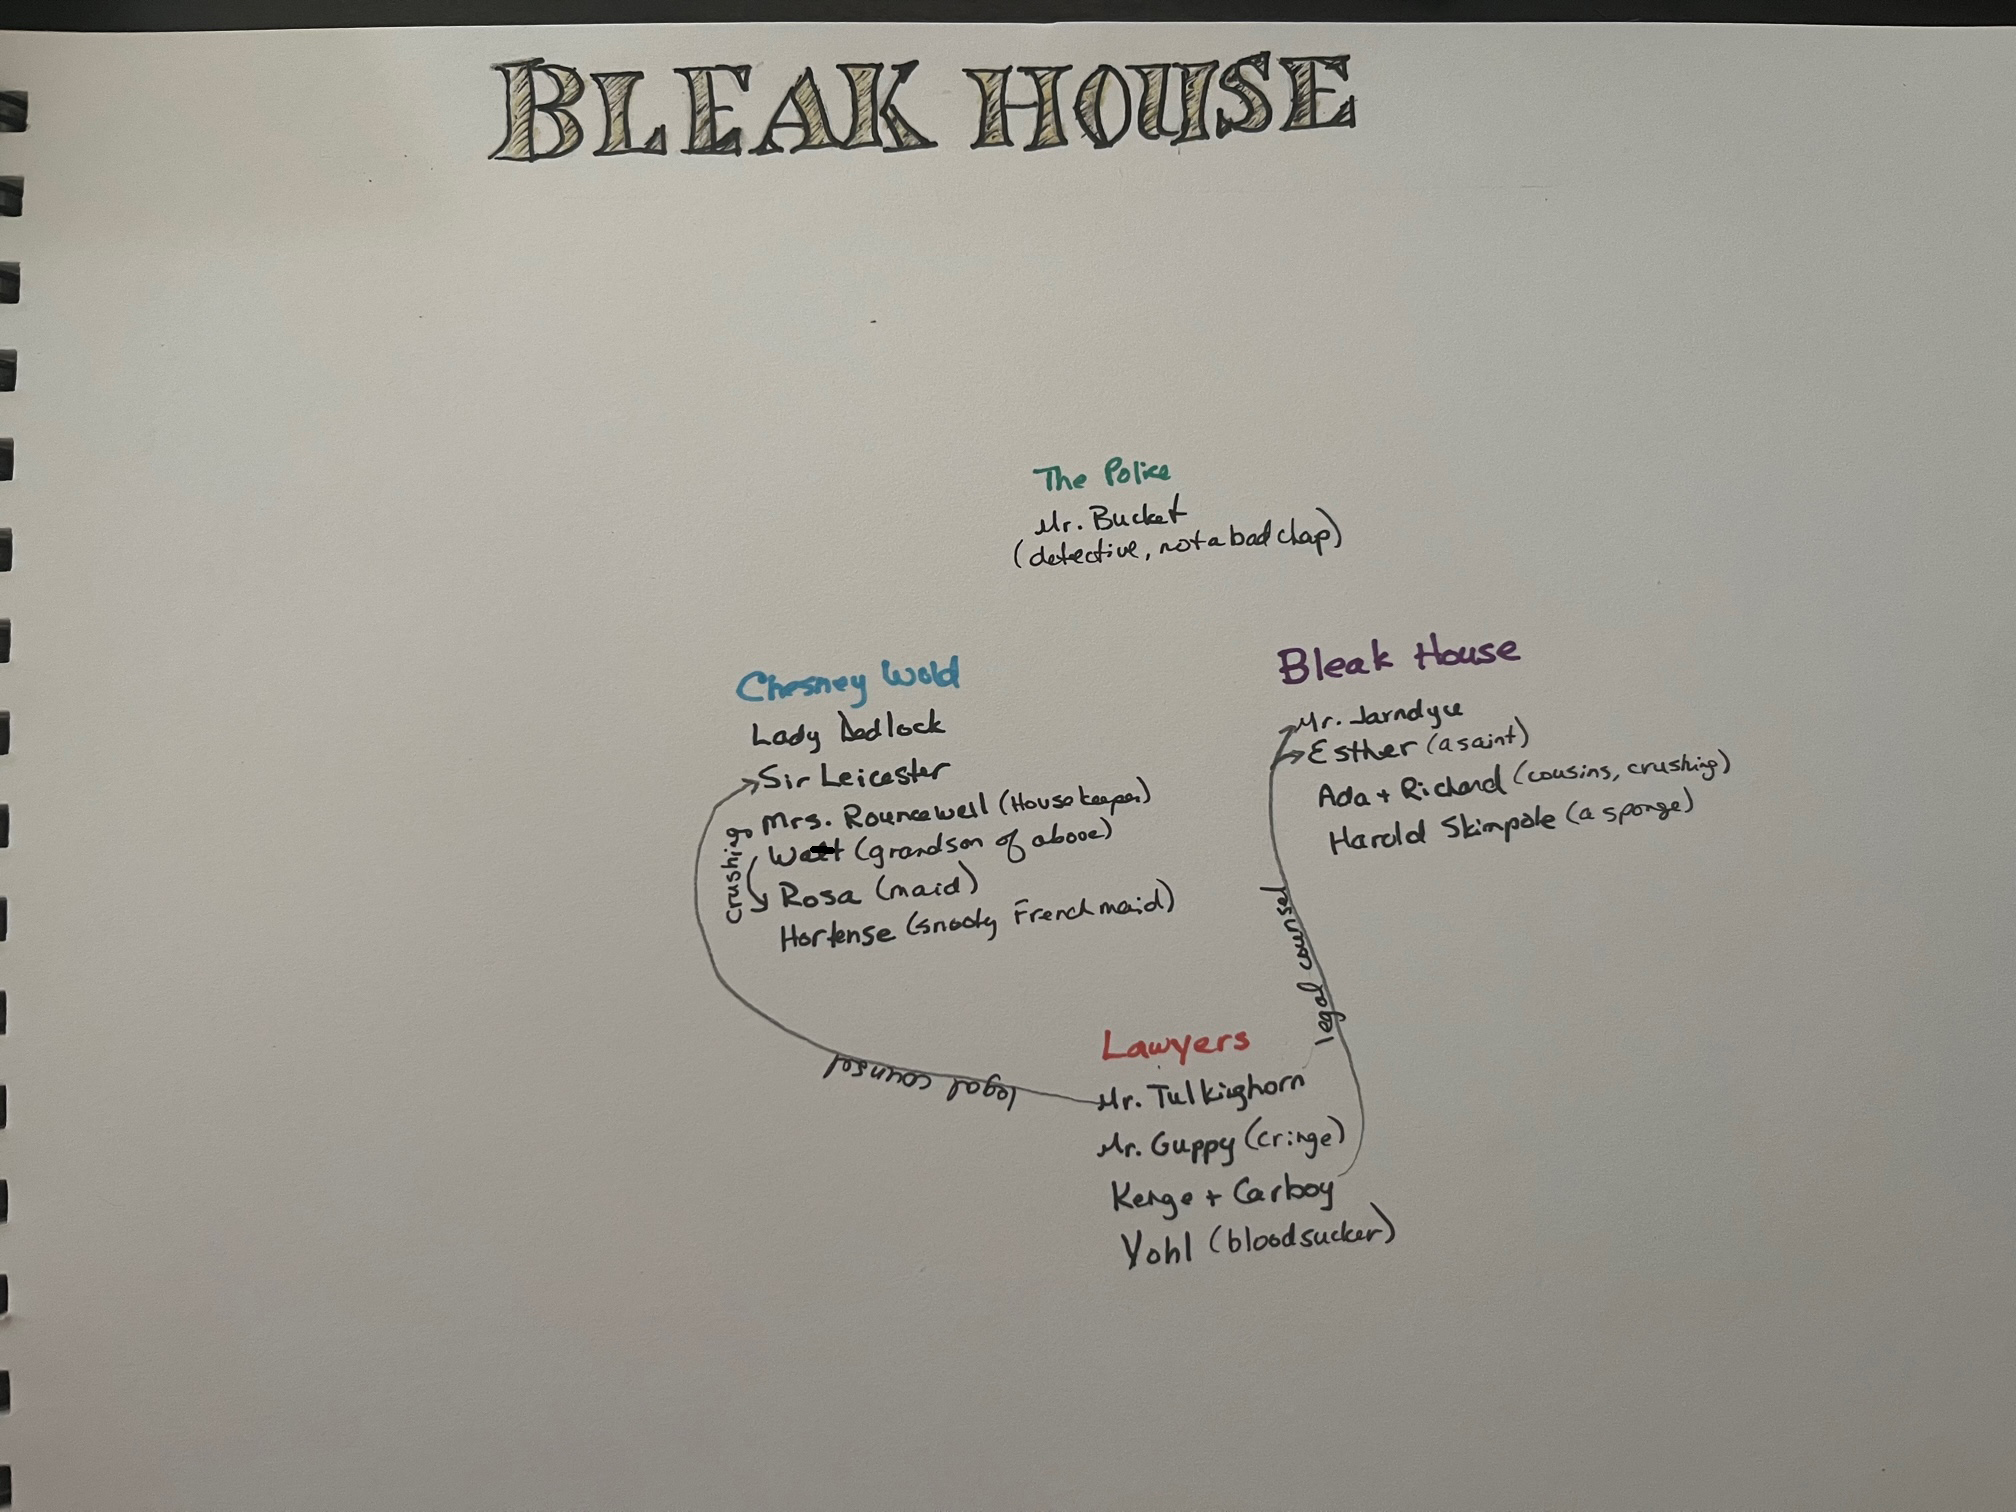 BLEAK HOUSE
The Police
Mr. Bucket
(detective, not a bad chap)
Chesney Wold
Lady Dedlock
Sir Leicester
Mrs. Rouncewell (Housekeeper)
Watt (grandson of above)
Rosa (maid)
Hortense (snooty French maid)
crushing
legal counsel
Bleak House
Mr. Jarndyce
Esther (a saint)
Ada + Richard (cousins, crushing)
Harold Skimpole (a sponge)
legal counsel
Lawyers
Mr. Tulkinghorn
Mr. Guppy (cringe)
Kenge + Carboy
Vohl (bloodsucker)